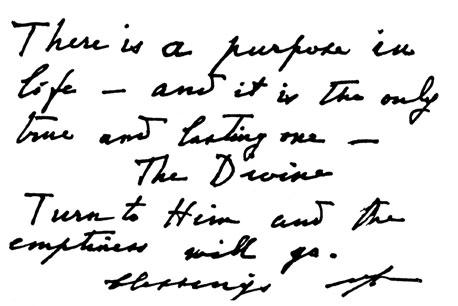 There is a purpose in
life – and it is the only
true and lasting one –
The Divine
Turn to Him and the
emptiness will go.
blessings